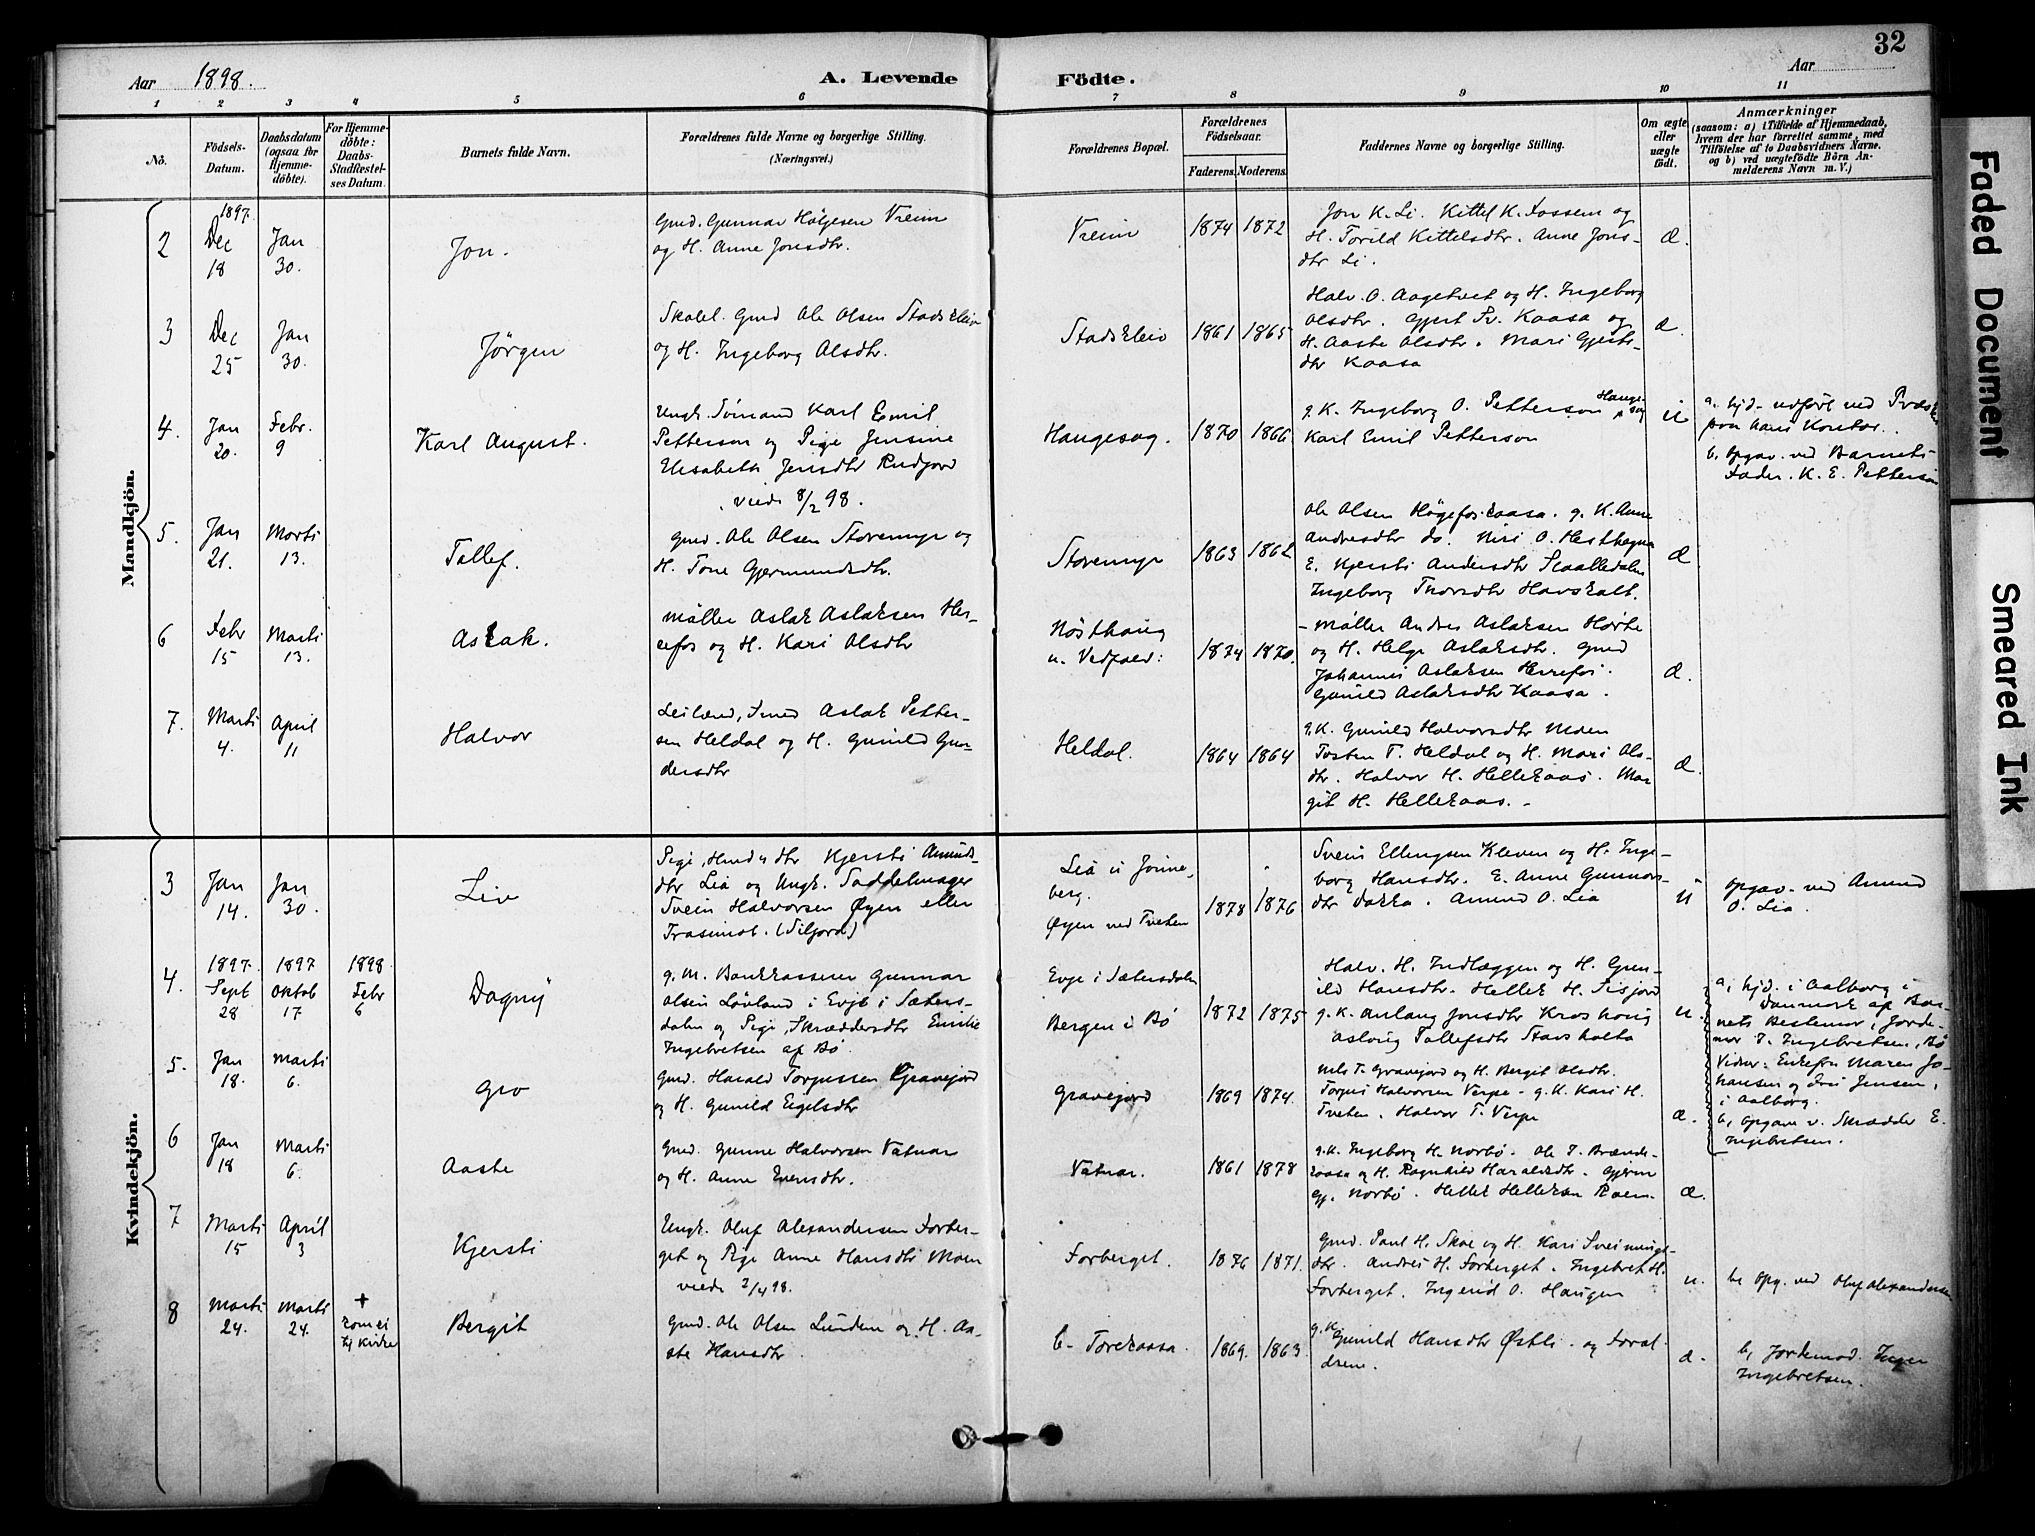 32
Aar 1898.
A. Levende Födte.
Aar
1 2 3 4 5 6 7 8 9 10 11
No.
Födsels-Datum.
Daabsdatum (ogsaa for Hjemme-döbte).
For Hjemme-döbte: Daabs-Stadfæstel-ses Datum.
Barnets fulde Navn.
Forældrenes fulde Navne og borgerlige Stilling.
(Næringsvei.)
Forældrenes Bopæl.
Forældrenes Födselsaar.
Faderens. Moderens.
Faddernes Navne og borgerlige Stilling.
Om ægte eller uægte födt.
Anmærkninger
(saasom: a) i Tilfælde af Hjemmedaab,
hvem der har forrettet samme, med
Tilföielse af to Daabsvidners Navne.
og b) ved uægtefödte Börn An-
melderens Navn m. V.)
Mandkjön.
2
1897.
Dec 18
Jan 30.
Jon.
Gmd. Gunnar Halgesen Vreim
og H. Anne Jonsdtr.
Vreim
1874 1872
Jon K. Li. Kittel K. Fossem og
H. Torild Kittelsdtr. Anne Jons-
dtr Li.
æ.
3
Dec 25
Jan 30.
Jörgen
Skolel. Gmd Ole Olsen Stadskleiv
og H. Ingeborg Olsdtr.
Stadskleiv
1861 1865
Halv. O. Aagetveit og H. Ingeborg
Olsdtr. Gjert Kaasa og
H. Aaste Olsdtr. Mari Gjerts-
dtr Kaasa
æ.
4.
Jan 20.
Febr. 9
Karl August.
Ungk. Sömand Karl Emil
Petterson og Pige Jensine
Elisabeth Jensdtr Rudjord
viede 8/2 98.
Haugesag.
1870 1866
g. K. Ingeborg O. Petterson Hauge-
sag
Karl Emil Petterson
u
a. hjd. udført ved Præsten
paa hans Kontor.
b. Opgav. ved Barnets
Fader. K. E. Petterson
5.
Jan 21.
Marts 13.
Tallef.
Gmd. Ole Olsen Storemyr og
H. Tone Gjermundsdtr.
Storemyr
1863 1862
Ole Olsen Högefoskaasa. g. K. Anne
Andresdtr do. O. Hesthagna
E. Kjersti Andersdtr
Ingeborg Thorsdtr Havskalt.
æ
6
Febr 15
Marts 13.
Aslak.
Møller Aslak Aslaksen Her-
refos og H. Kari Olsdtr
Nøsthaug
u. Vedfald:
1874 1870.
Møller Andres Aslaksen Hørte
og H. Helge Aslaksdtr. Gmd
Johannes Aslaksen Herrefos.
Gunild Aslaksdtr Kaasa.
æ.
7.
Marts 4.
April 11
Halvor
Leilænd, Smed Aslak Petter-
sen Heldal og H. Gunild Gun-
dersdtr
Heldal.
1864 1864
g. K. Gunild Halvorsdtr Moen
Tosten T. Heldal og H. Mari Ols-
dtr. Halvor H. Hellekaas. Mar
git H. Hellekaas. -
æ.
Kvindekjön.
3
Jan 14.
Jan 30.
Liv
Pige, Husmdsdtr Kjersti Amunds-
dtr Lia og Ungk. Saddelmager
Svein Halvorsen Øyen eller
Træsmot. (Siljord)
Lia u Jönne-
berg.
Øyen ved Tveten
1878 1876
Svein Ellingsen Kleven og H. Inge-
borg Hansdtr. E. Anne Gunnars-
dtr Dokka. Amund O. Lia
u
opgav. ved Amund
O. Lia.
4.
1897. Sept 28
1897 Oktob 17
1898 Febr 6
Dagny
g. M. Bankkasserer Gunnar
Olsen Løvland i Evje i Sæters-
dalen og Pige, Skræddersdtr Emilie
Ingebretsen af Bø.
Evje i Sætersdalen
Bergen i Bø
1872 1875
Halv. H. Indlæggen og H. Gun-
ild Hansdtr. Hellek H. Sisjord
g. K. Anlaug Jonsdtr Kroshaug
Aslaug Tallefsdtr Stavsholta
u.
a, hjd. i Aalborg i
Danmark af Bar-
nets Bestemor, Jorde-
mor I. Ingebretsen, Bø
Vidner: Enkefru Maren Jo-
hansen og Fru Jensen,
i Aalborg.
b, Opgave v. Skrædder E.
Ingebretsen.
5.
Jan 18.
Marts 6.
Gro
Gmd. Harald Torgussen Gravejord
og H. Gunild Eigelsdtr
Gravejord
1869 1874.
Nils T. Gravejord og H. Bergit Olsdtr.
Torgus Halvorsen Verpe - g. K. Kari H.
Tveten. Halvor T. Verpe
æ.
6
Jan 18
Marts 6.
Aaste
Gmd. Gunne Halvorsen Vatnar
og H. Anne Evensdtr.
Vatnar.
1861 1878
g. K. Ingeborg H. Norbø. Ole T. Brænde-
kaasa og H. Ragnhild Haraldsdtr. Gjerm
Gj. Norbø. Hellek Helleksen Roem.
æ.
7
Marts 15
April 3
Kjersti
Ungk. Oluf Alexandersen Forber-
get og Pige Anne Hansdtr Moen
viede 3/4 98.
Forberget.
1876 1871.
Gmd. Paul H. Skoe og H. Kari Sveinungs-
dtr. Andres H. Forberget. Ingebret H.
Forberget. Ingerid O. Haugen
u.
b, Opg. ved Oluf Alexandersen
8
Marts 24.
Marts 24.
+
kom ei
til Kirke
Bergit
Gmd. Ole Olsen Lunden og H. Aa-
ste Hansdtr.
Torekaasa.
1869. 1863.
g. K. Gunild Hansdtr Østli og Foræl-
drene.
æ.
b, Jordemod. Inger
Ingebretsen.
Faded Document
Smeared Ink